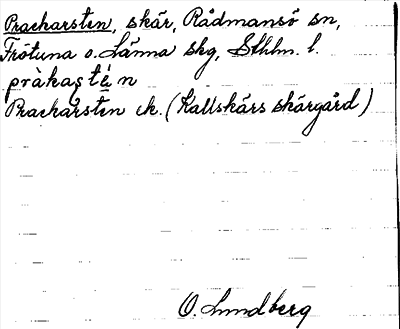 Pracharsten, skär, Rådmansö sn,
Frötuna o. Länna skg, Sthlm. l.
pràkaştè̠n
Pracharsten ek. (Kallskärs skärgård)
O. Lundberg